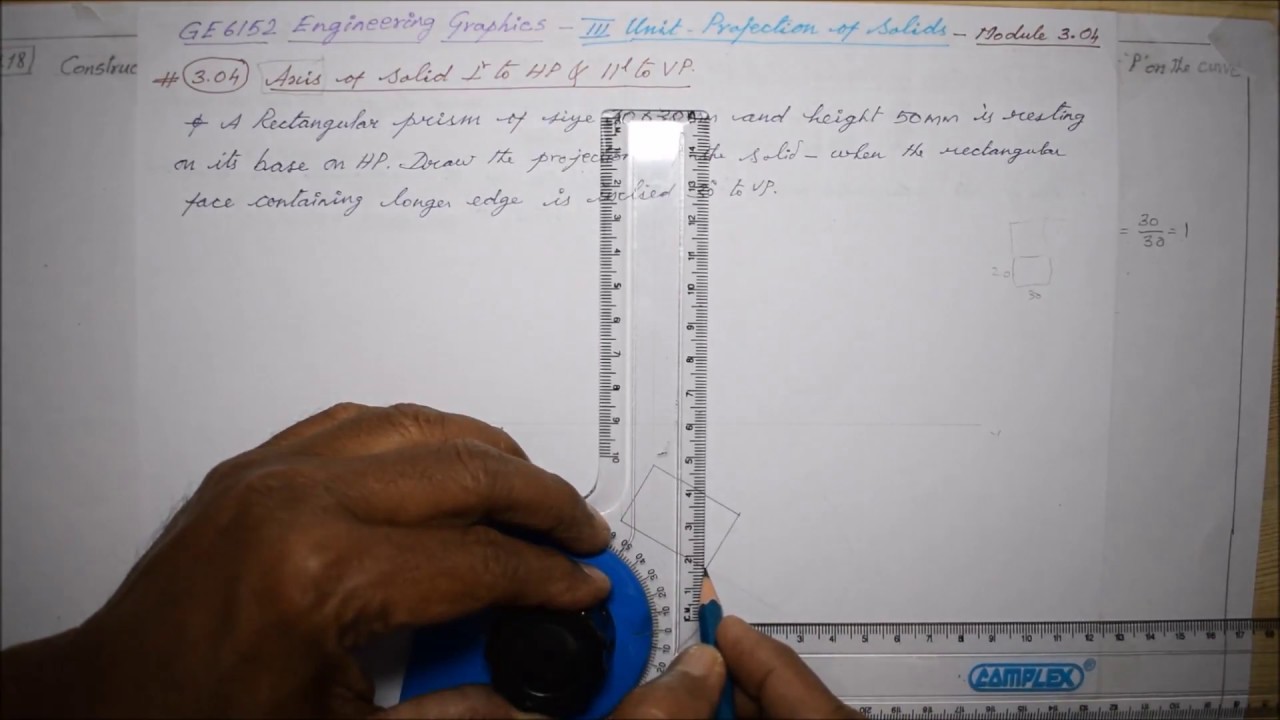 GE6152 Engineering Graphics - III Unit - Projection of Solids - Module 3.04
# 3.04 Axis of Solid ⊥r to HP & 11l to VP.
18 Construc
"P" on the curve
A Rectangular prism of size and height 50mm is resting
on its base on HP. Draw the the solid - when the rectangular
face containing longer edge is to VP.
= 30/30 = 1
20
30
CAMPLEX®